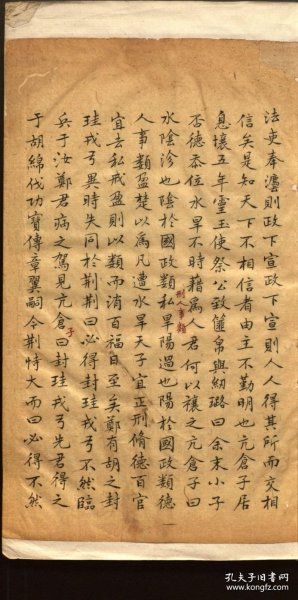 法吏奉灋則政下宣政下宣則人人得其所而交相
信矣是知天下不相信者由主不勤明也亢倉子居
息壤五年靈王使祭公致篚帛與紉璐曰余末小子
否德忝位水旱不時藉為人君何以禳之亢倉子曰
水陰沴也陰於國政類私旱陽過也陽於國政類德
人事類盈楚以為凡遭水旱天子宜正刑脩德百官
宜去私戒盈則以類而消百福日至矣鄭有胡之封
珪戎弓異時失同於荆荆曰必得封珪戎弓不然臨
兵于汝鄭君病之駕見亢倉曰封珪戎弓先君得之
于胡綿伐功寶傳章翼嗣今荆恃大而曰必得不然
刑人事類
子
孔夫子旧书网
book.kongfz.com